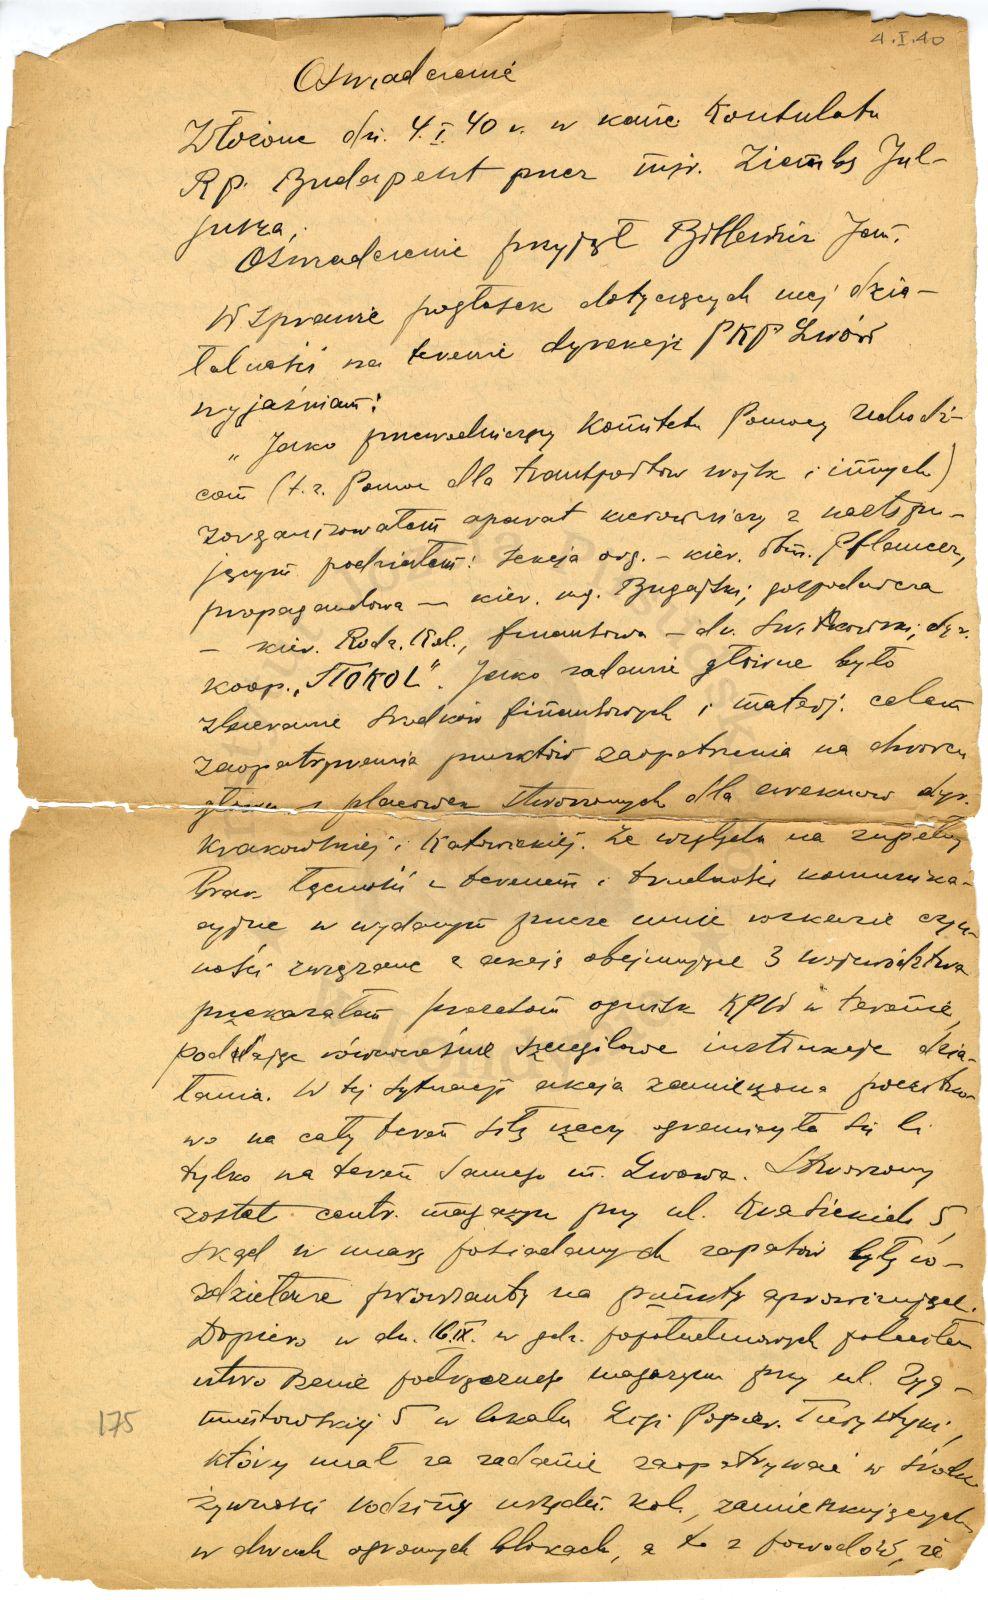 4.I.40
Oświadczenie
Złożone dn. 4.I.40 r. w kanc. Konsulatu
Rp. Budapeszt przez mjr. Ziembę Jul-
jusza,
Oświadczenie przyjął Bitlewicz Jan.
W sprawie pogłosek dotyczących mej dzia-
łalności na terenie dyrekcji PKP Lwów
wyjaśniam:
„Jako przewodniczący Komitetu Pomocy Uchodź-
com (t.z. Pomoc dla transportów wojsk i innych)
zorganizowałem aparat kierowniczy z następu-
jącym podziałem: sekcja org. – kier. Pflancer,
propagandowa – kier. mg. Bugajski, gospodarcza
– kier. Rodz. Kol., finansowa – dr. dyr.
koop. „STOKOL". Jako zadanie główne było
zbieranie środków finansowych i materj. celem
zaopatrywania punktów zaopatrzenia na dworcu
główn. i placówek stworzonych dla dyr.
Krakowskiej i Katowickiej. Ze względu na zupełny
brak łączności z terenem i trudności komunika-
cyjne w wydanym przeze mnie czyn-
ności związane z akcją obejmujące 3 województwa
przekazałem prezesom ognisk KPW w terenie,
podając równocześnie szczegółowe instrukcje dzia-
łania. W tej sytuacji akcja zamierzona początko-
wo na cały teren siłą rzeczy ograniczyła się li
tylko na teren samego m. Lwowa. Stworzony
został centr. magazyn przy ul. Krasickich 5,
skąd w miarę posiadanych zapasów były w-
zdzielane prowianty na punkty aprowizacyjne.
Dopiero w dn. 16.IX. w gdz. popołudniowych poleciłem
utworzenie podręcznego magazynu przy ul. Zyg-
muntowskiej 5 w lokalu Ligi Popier. Turystyki,
który miał za zadanie zaopatrywać w środki
żywności rodziny urzędn. kol., zamieszkujących
w dwuch ogromnych blokach, a to z powodów, że
175